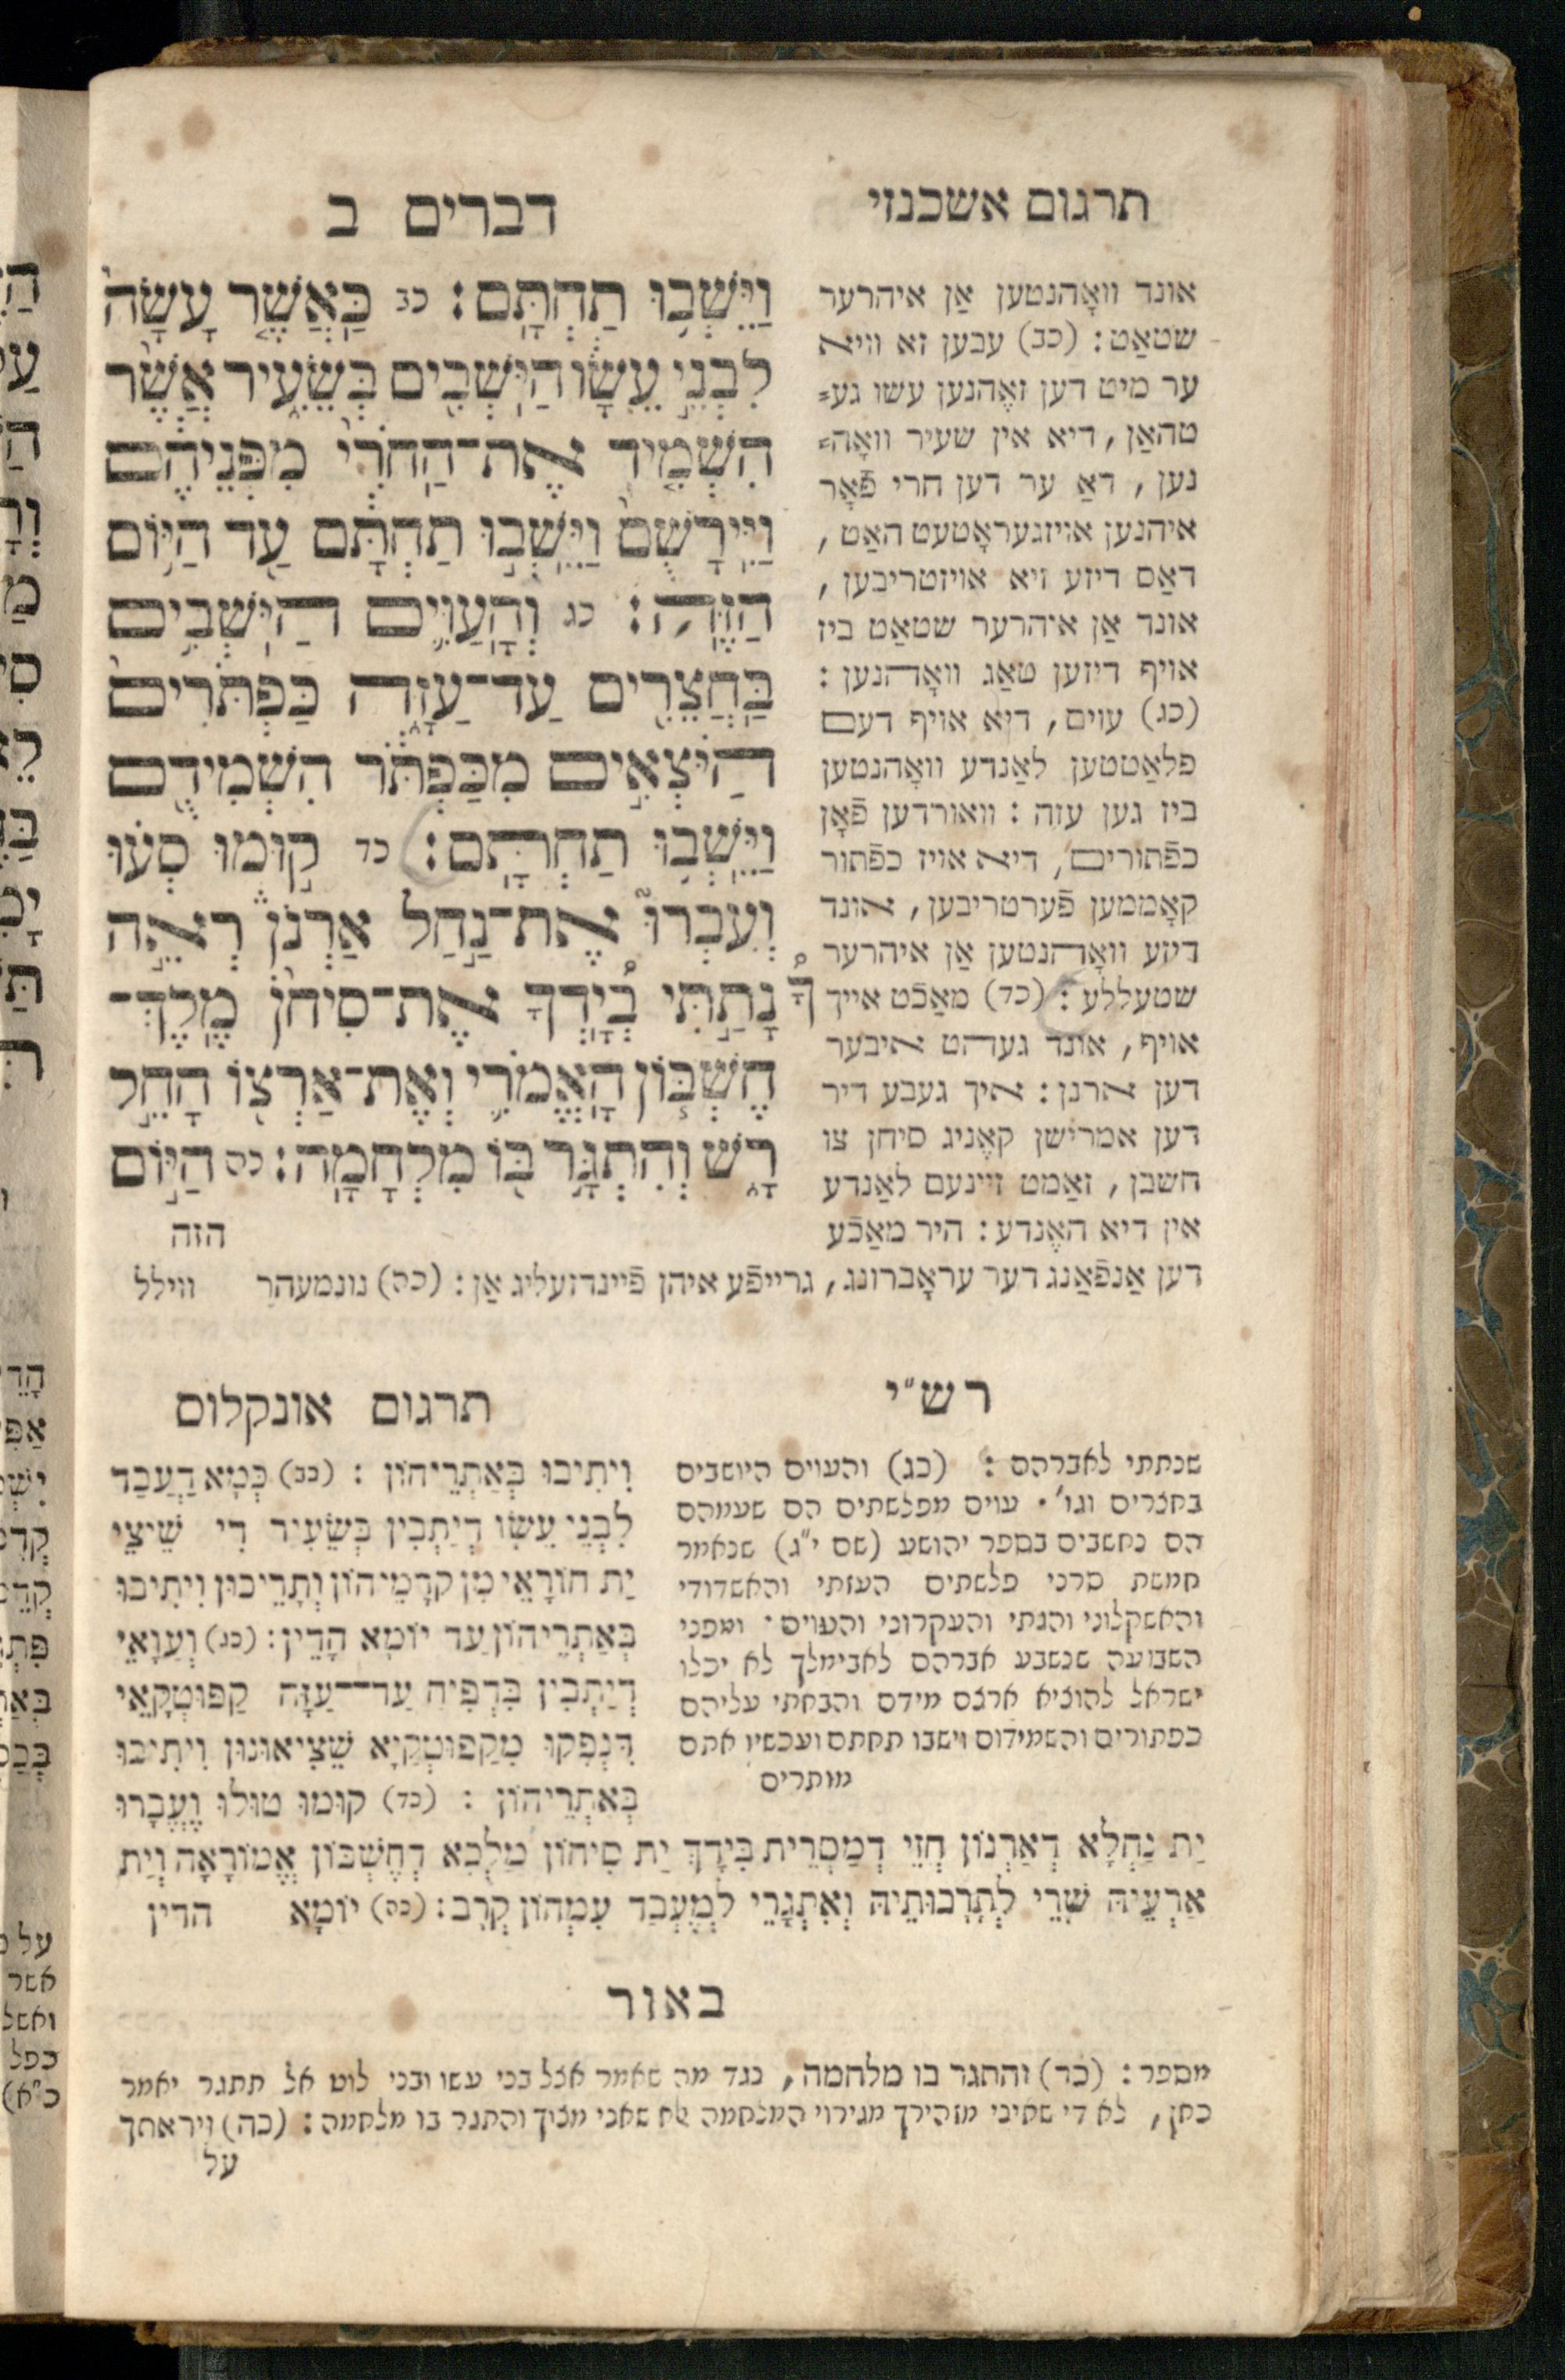 דברים ב
וַיֵּשְׁב֥וּ תַחְתָּֽם׃ כב כַּאֲשֶׁ֤ר עָשָׂה֙
לִבְנֵ֣י עֵשָׂ֔ו הַיֹּשְׁבִ֖ים בְּשֵׂעִ֑יר אֲשֶׁ֨ר
הִשְׁמִ֤יד אֶת־הַחֹרִי֙ מִפְּנֵיהֶ֔ם
וַיִּֽירָשֻׁם֙ וַיֵּשְׁב֣וּ תַחְתָּ֔ם עַ֖ד הַיּ֥וֹם
הַזֶּֽה׃ כג וְהָֽעַוִּ֛ים הַיֹּשְׁבִ֥ים
בַּחֲצֵרִ֖ים עַד־עַזָּ֑ה כַּפְתֹּרִים֙
הַיֹּצְאִ֣ים מִכַּפְתֹּ֔ר הִשְׁמִידֻ֖ם
וַיֵּשְׁב֥וּ תַחְתָּֽם׃ כד ק֣וּמוּ סְּע֗וּ
וְעִבְרוּ֮ אֶת־נַ֣חַל אַרְנֹן֒ רְאֵ֣ה
נָתַ֣תִּי בְ֠יָדְךָ אֶת־סִיחֹ֨ן מֶֽלֶךְ־
חֶשְׁבּ֧וֹן הָֽאֱמֹרִ֛י וְאֶת־אַרְצ֖וֹ הָחֵ֣ל
רָ֑שׁ וְהִתְגָּ֥ר בּ֖וֹ מִלְחָמָֽה׃ כה הַיּ֣וֹם
הזה
תרגום אשכנזי
אונד וואָהנטען אַן איהרער
שטאַט: (כב) עבען זא וויא
ער מיט דען זאֶהנען עשו גע=
טהאַן, דיא אין שעיר וואָה=
נען, דאַ ער דען חרי פֿאָר
איהנען אויזגעראָטעט האַט,
דאַס דיזע זיא אויזטריבען,
אונד אַן איהרער שטאַט ביז
אויף דיזען טאַג וואָהנען:
(כג) עוים, דיא אויף דעם
פלאַטטען לאַנדע וואָהנטען
ביז גען עזה: וואורדען פֿאָן
כפֿתורים, דיא אויז כפֿתור
קאָממען פֿערטריבען, אונד
דיזע וואָהנטען אַן איהרער
שטעללע: (כד) מאַכֿט אייך
אויף, אונד געהט איבער
דען ארנן: איך געבע דיר
דען אמרישן קאֶניג סיחן צו
חשבן, זאַמט זיינעם לאַנדע
אין דיא האֶנדע: היר מאַכֿע
דען אַנפֿאַנג דער עראָברונג, גרייפֿע איהן פֿיינדזעליג אַן: (כה) נונמעהר ווילל
רש״י
שנתתי לאברהם: (כג) והעוים היושבים
בחצרים וגו׳. עוים מפלשתים הם שעמהם
הם נחשבים בספר יהושע (שם י״ג) שנאמר
חמשת סרני פלשתים העזתי והאשדודי
והאשקלוני והגתי והעקרוני והעוים. ומפני
השבועה שנשבע אברהם לאבימלך לא יכלו
ישראל להוציא ארצם מידם והבאתי עליהם
כפתורים והשמידום וישבו תחתם ועכשיו אתם
מותרים
תרגום אונקלוס
וִיתִיבוּ בְּאַתְרֵיהוֹן: (כב) כְּמָא דַּעֲבַד
לִבְנֵי עֵשָׂו דְיַתְבִין בְּשֵׂעִיר דִי שֵׁיצֵי
יַת חוֹרָאֵי מִן קֳדָמֵיהוֹן וְתָרֵיכוּן וִיתִיבוּ
בְּאַתְרֵיהוֹן עַד יוֹמָא הָדֵין: (כג) וְעַוָאֵי
דְיַתְבִין בִּדְפִיחַ עַד־עַזָּה קַפּוּטְקָאֵי
דִּנְפָקוּ מִקַפּוּטְקַיָא שֵׁצִיאוּנוּן וִיתִיבוּ
בְּאַתְרֵיהוֹן: (כד) קוּמוּ טוּלוּ וְעֲבָרוּ
יַת נַחְלָא דְאַרְנוֹן חֲזֵי דְמַסְרֵית בִּידָךְ יַת סִיחוֹן מַלְכָּא דְחֶשְׁבּוֹן אֱמוֹרָאָה וְיַת
אַרְעֵיהּ שָׁרֵי לְתָרָכוּתֵיהּ וְאִתְגָּרֵי לְמֶעְבַּד עִמְּהוֹן קְרָב: (כה) יוֹמָא הדין
באור
מספר: (כד) והתגר בו מלחמה, נגד מה שאמר אצל בני עשו ובני לוט אל תתגר יאמר
כאן, לא די שאיני מזהירך מגירוי המלחמה אלא שאני מצוך והתגר בו מלחמה: (כה) ויראתך
על